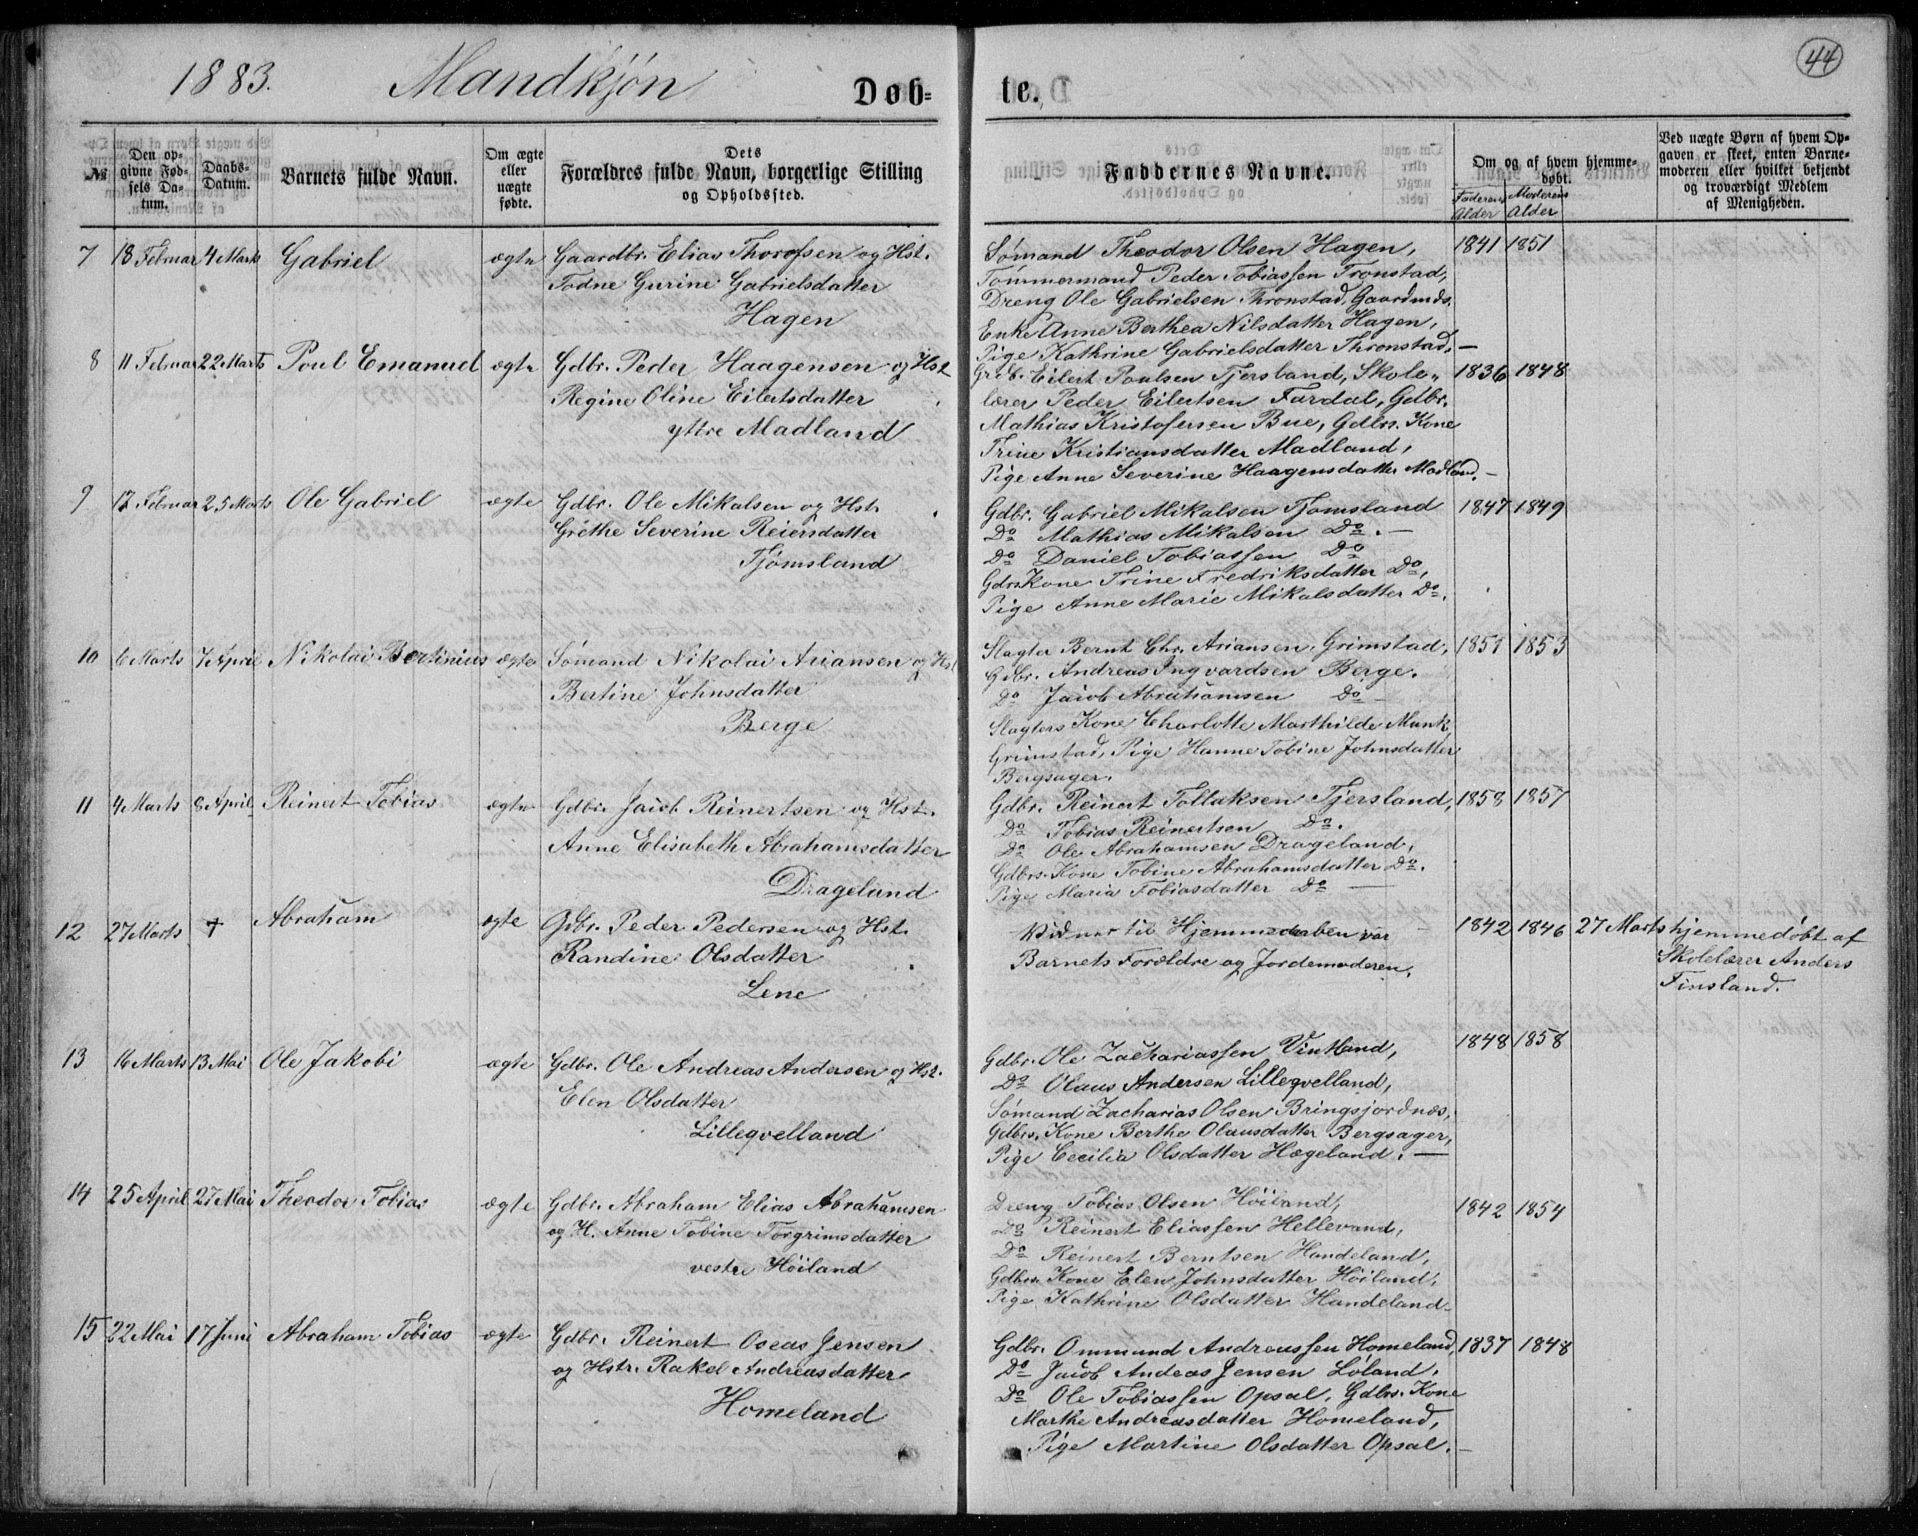 44
1883. Mandkjøn Døb= te.
№
Den op-
givne Fød-
sels Da-
tum.
Daabs-
Datum.
Barnets fulde Navn.
Om ægte
eller
uægte
fødte.
Dets
Forældres fulde Navn, borgerlige Stilling
og Opholdssted.
Faddernes Navne.
Om og af hvem hjemme-
døbt.
Faderens
Alder
Moderens
Alder
Ved uægte Børn af hvem Op-
gaven er skeet, enten Barne-
moderen eller hvilket bekjendt
og troværdigt Medlem
af Menigheden.
7 18 Februar 4 Marts Gabriel ægte Gaardbr. Elias Thorossen og Hst.
Todne Gurine Gabrielsdatter
Hagen
Sømand Theodor Olsen Hagen, 1841 1851
Tømmermand Peder Tobiassen Tronstad,
Dreng Ole Gabrielsen Thronstad, Gaardmds.
Enke Anne Berthea Nilsdatter Hagen,
Pige Kathrine Gabrielsdatter Thronstad. —
8 11 Februar 22 Marts Poul Emanuel ægte Gdbr. Peder Haagensen og Hst.
Regine Oline Eilertsdatter
yttre Madland
Grdb. Eilert Poulsen Tjersland, Skole- 1836 1848
lærer Peder Eilertsen Fardal, Gdbr.
Mathias Kristofersen Bue, Gdbrs. Kone
Trine Kristiansdatter Madland,
Pige Anne Severine Haagensdatter Madland. —
9 12 Februar 25 Marts Ole Gabriel ægte Gdbr. Ole Mikalsen og Hst.
Grethe Severine Reiersdatter
Tjømsland
Gdbr. Gabriel Mikalsen Tjomsland 1847 1849
Do Mathias Mikalsen Do. —
Do Daniel Tobiassen Do
Gdrs Kone Trine Fredriksdatter Do,
Pige Anne Marie Mikalsdatter Do.
10 6 Marts 7 April Nikolai Bertinius ægte Sømand Nikolai Ariansen og Hst
Bertine Johnsdatter
Berge
Slagter Bernt Chr. Ariansen, Grimstad, 1851 1853
Gdbr. Andreas Ingvardsen Berge.
Do Jacob Abrahamsen Do —
Slagters Kone Charlotte Marthilde Munk
Grimstad, Pige Hanne Tobine Johnsdatter
Bergsager.
11 4 Marts 8 April Reinert Tobias ægte Gdbr. Jacob Reinertsen og Hst.
Anne Elisabeth Abrahamsdatter
Drageland
Gdbr. Reinert Tollaksen Tjersland, 1858 1857
Do Tobias Reinertsen Do.
Do Ole Abrahamsen Drageland,
Gdbrs. Kone Tobine Abrahamsdatter Do.
Pige Maria Tobiasdatter Do —
12 27 Marts † Abraham ægte Gdbr. Peder Pedersen og Hst.
Randine Olsdatter
Lene
Vidner til Hjemmedaaben var 1842 1846 27 Marts hjemmedøbt af
Barnets Forældre og Jordemoderen. Skolelærer Anders
Finsland.
13 16 Marts 13 Mai Ole Jakobi ægte Gdbr. Ole Andreas Andersen og Hst.
Elen Olsdatter
Lillegvelland
Gdbr. Ole Zachariassen Vintland, 1848 1858
Do Olaus Andersen Lillegvelland,
Sømand Zacharias Olsen Bringsjordnæs,
Gdbrs. Kone Berthe Olausdatter Bergsager,
Pige Cecilia Olsdatter Hægeland. —
14 25 April 27 Mai Theodor Tobias ægte Gdbr. Abraham Elias Abrahamsen
og H. Anne Tobine Torgrimsdatter
vestre Höiland
Dreng Tobias Olsen Höiland, 1842 1854
Do Reinert Eliassen Hellevand,
Do Reinert Berntsen Handeland,
Gdbrs. Kone Elen Johnsdatter Höiland,
Pige Kathrine Olsdatter Handeland —
15 22 Mai 17 Juni Abraham Tobias ægte Gdbr. Reinert Oseas Jensen
og Hstr. Rakel Andreasdatter
Homeland
Gdbr. Ommund Andreassen Homeland, 1837 1848
Do Jacob Andeas Jensen Løland.
Do Ole Tobiassen Opsal, Gdbrs. Kone
Marthe Andreasdatter Homeland,
Pige Martine Olsdatter Opsal. —